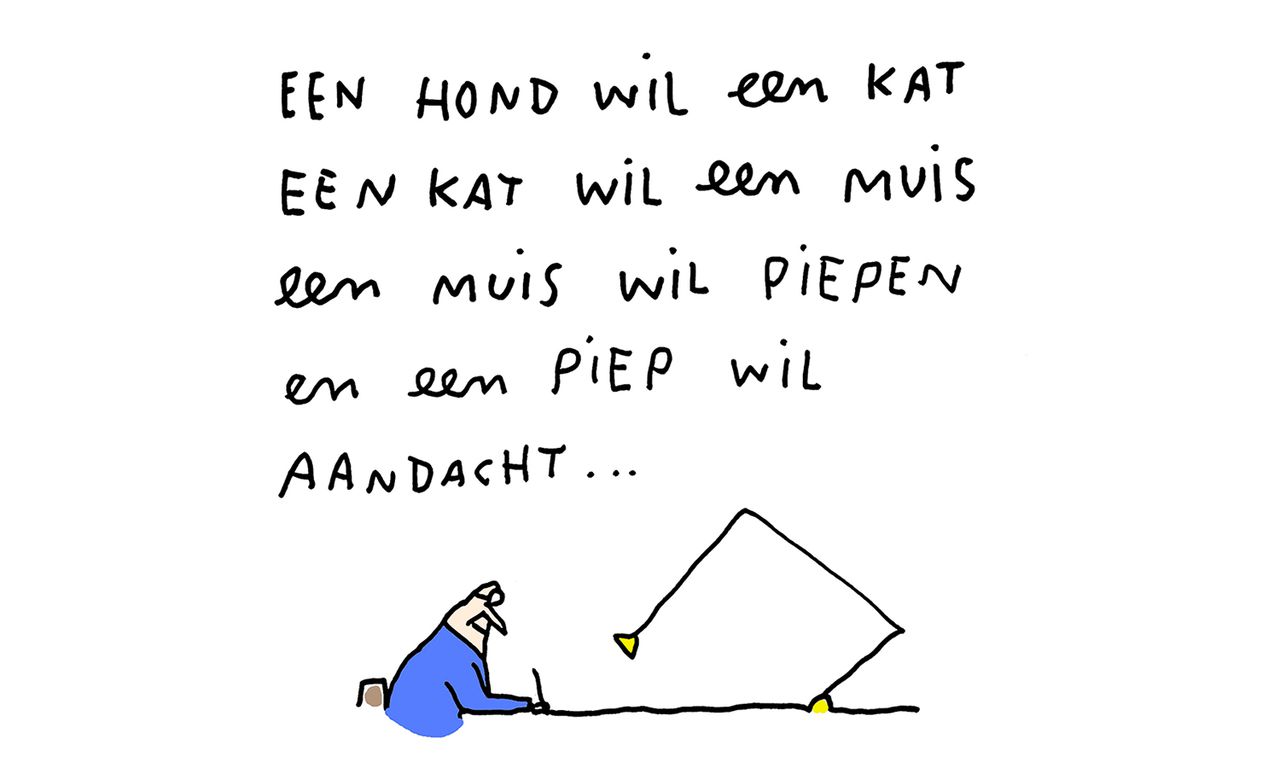 EEN HOND WIL een KAT
EEN KAT WIL een MUIS
een MUIS WIL PIEPEN
en een PIEP WIL
AANDACHT...